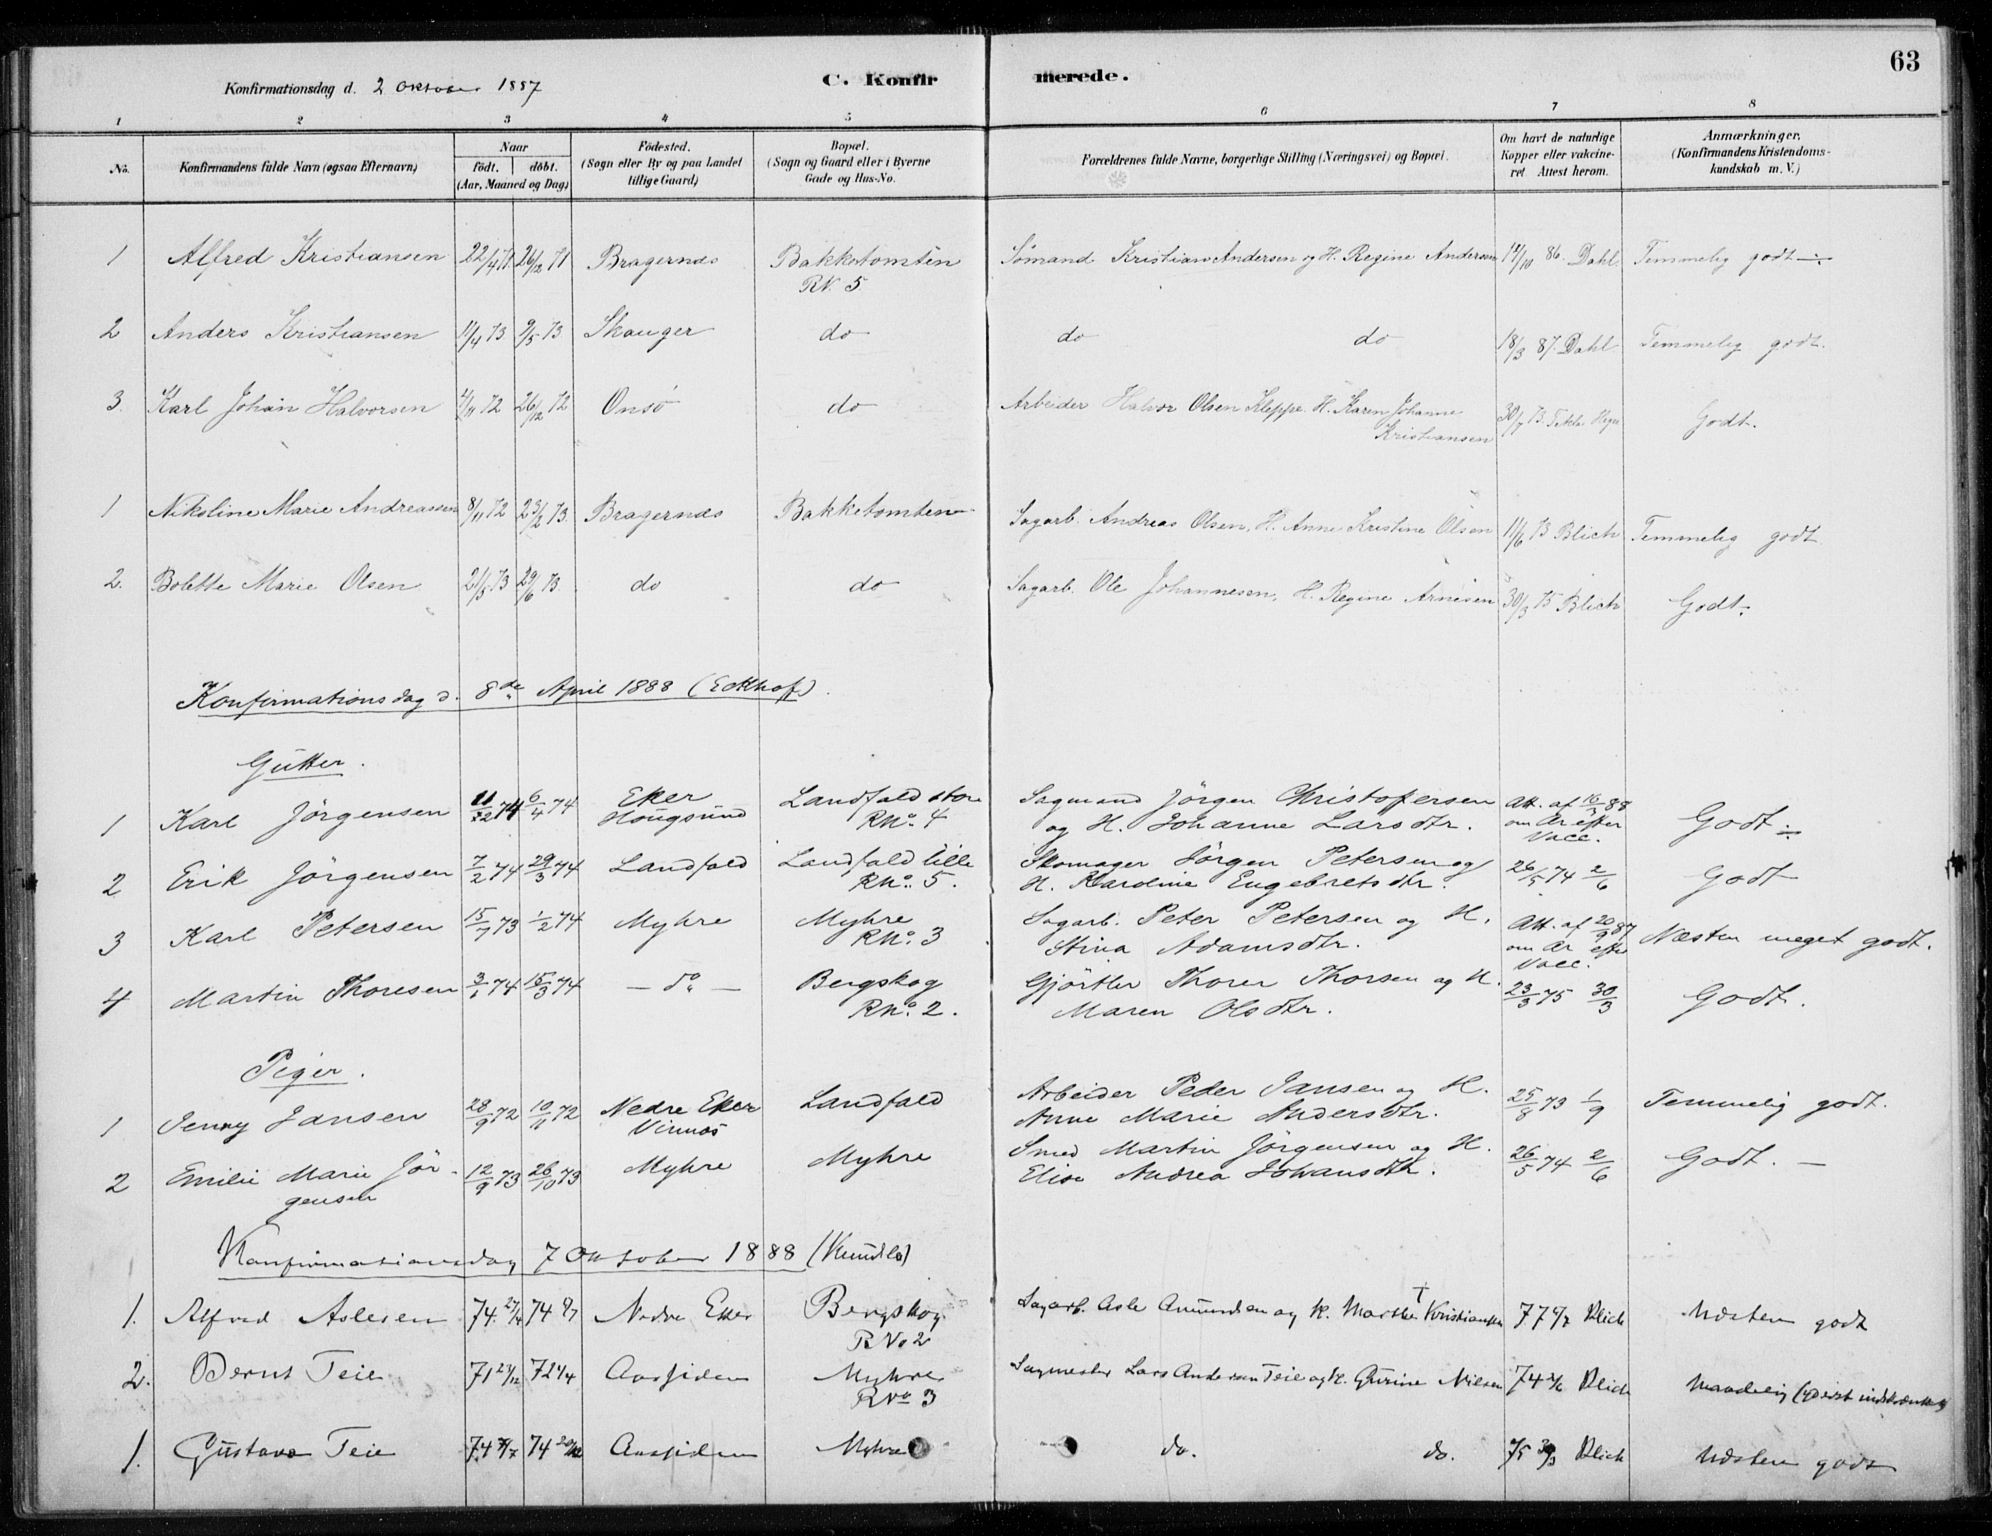 63
Konfirmationsdag d. 2 Oktober 1887
C. Konfirmerede.
1 2 3 4 5 6 7 8
No. Konfirmandens fulde Navn (ogsaa Efternavn) Naar födt. döbt. (Aar, Maaned og Dag) Födested. (Sogn eller By og paa Landet tillige Gaard) Bopæl. (Sogn og Gaard eller i Byerne Gade og Hus-No. Forældrenes fulde Navne, borgerlige Stilling (Næringsvei) og Bopæl. Om havt de naturlige Kopper eller vakcineret Attest herom. Anmærkninger. (Konfirmandens Kristendomskundskab m. V.)
1 Alfred Kristiansen 22/4 71 26/12 71 Bragernæs Bakketomten RN. 5 Sömand Kristian Andersen og H. Regine Andersen 86. Dahl Temmelig godt
2 Anders Kristiansen 11/4 73 9/5 73 Skauger do do do 18/3 87. Dahl Temmelig godt.
3. Karl Johan Halvorsen 72 26/12 72 Onsö do Arbeider Halvor Olsen Kleppe. H. Karen Johanne Kristiansen 30/7 73. Godt.
1 Nikoline Marie Andreassen 8/11 72 23/2 73. Bragernæs Bakketomten Sagarb. Andreas Olsen, H. Anne Kristine Olsen 11/6 73 Blich Temmelig godt
2. Bolette Marie Olsen 2/5 73 29/6 73. do do Sagarb. Ole Johannesen, H. Regine Arnesen 30/3 75 Blich Godt.
Konfirmationsdag d. 8de April 1888 (Eckhof).
Gutter.
1 Karl Jörgensen 11/12 74 6/4 74 Eker Hougsund Landfald store RNo. 4 Sagmand Jörgen Christofersen og H. Johanne Larsdtr. Att. af 16/3 88 om Ar efter Vacc. Godt
2 Erik Jörgensen 7/2 74 29/3 74 Landfald Landfald lille RNo. 5. Skomager Jörgen Petersen og H. Karoline Engebretsdtr. 26/5 74 2/6 Godt
3 Karl Petersen 15/7 73 1/2 74 Myhre Myhre RNo. 3 Sagarb. Peter Petersen og H. Stina Adamsdtr. Att. af 20/9 87 om Ar efter Vacc. Næsten meget godt.
4 Martin Thoresen 3/1 74 15/3 74 — do — Bergskog RNo. 2. Gjörtler Thorer Thorsen og H. Maren Olsdtr. 23/3 75 30/3 Godt.
Piger.
1 Jenny Jansen 28/9 72 10/11 72 Nedre Eker Landfald Arbeider Peder Jansen og H. Anne Marie Andersdtr. 25/8 73 1/9 Temmelig godt.
2 Emilie Marie Jörgensen 12/9 73 26/10 73 Myhre Myhre Smed Martin Jörgensen og H. Elise Andrea Johansdtr. 26/5 74 2/6 Godt. —
Konfirmationsdag 7 Oktober 1888
1. Alfred Aslesen 74 27/4 74 Nedre Eker Bergskog RNo 2 Sagarb. Asle Amundsen og H. Marthe † Kristiansen 77 Blich Næsten godt
2. Bernt Teie 71 27/12 72 Aassiden Myhre RNo 3 Sagmester Lars Andersen Teie og H. Gurine Nilsen 74 Blich Maadelig
1. Gustava Teie 74 74 Aassiden Myhre do. do. 75 Blich Næsten godt